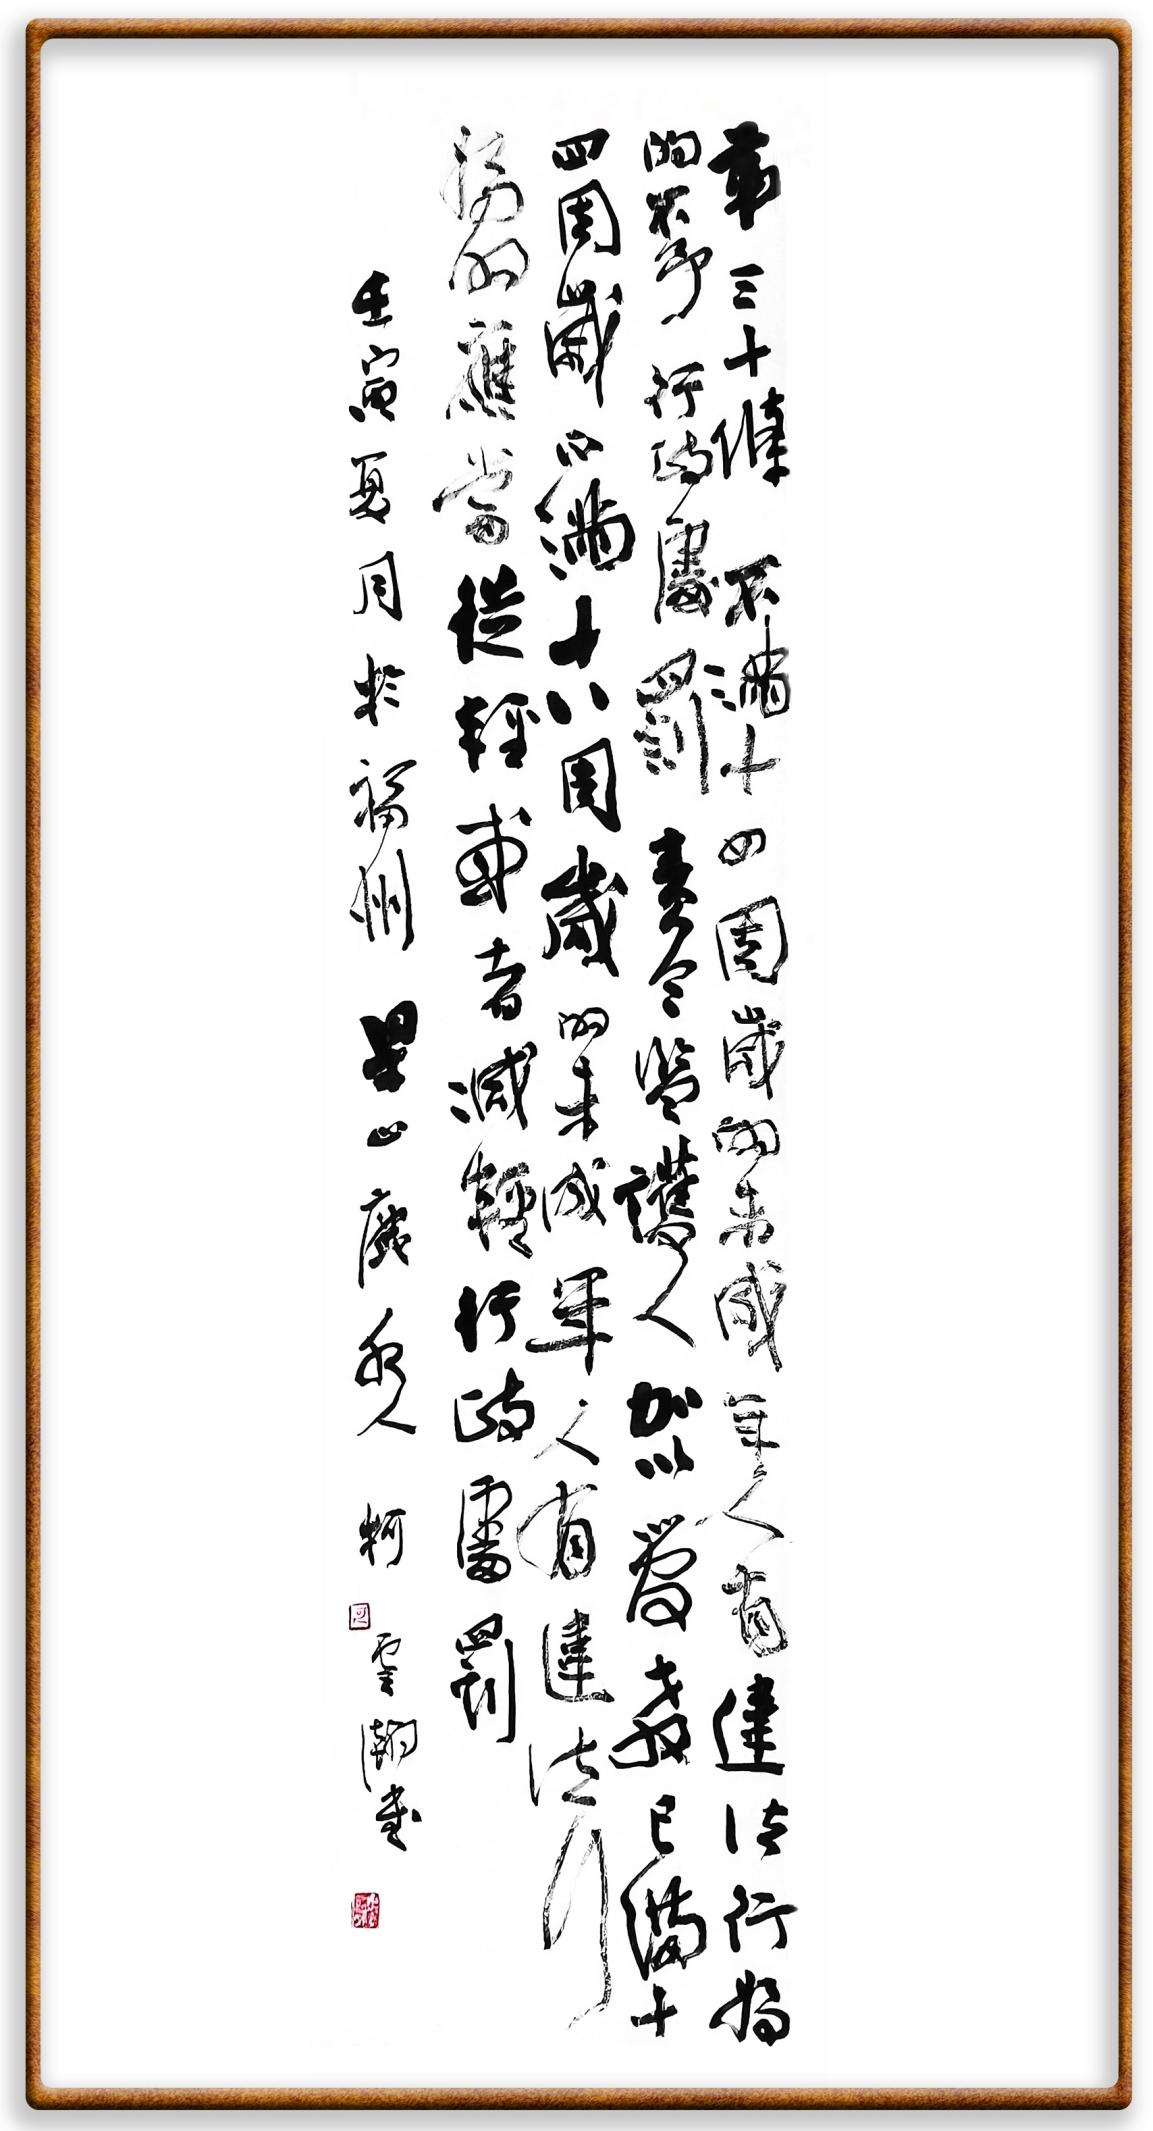 第三十條 不滿十四周歲的未成年人有違法行為
的不予行政處罰責令監護人加以管教已滿十
四周歲不滿十八周歲的未成年人有違法行
為的應當從輕或者減輕行政處罰
壬寅夏月於福州 山人 柯雲瀚書